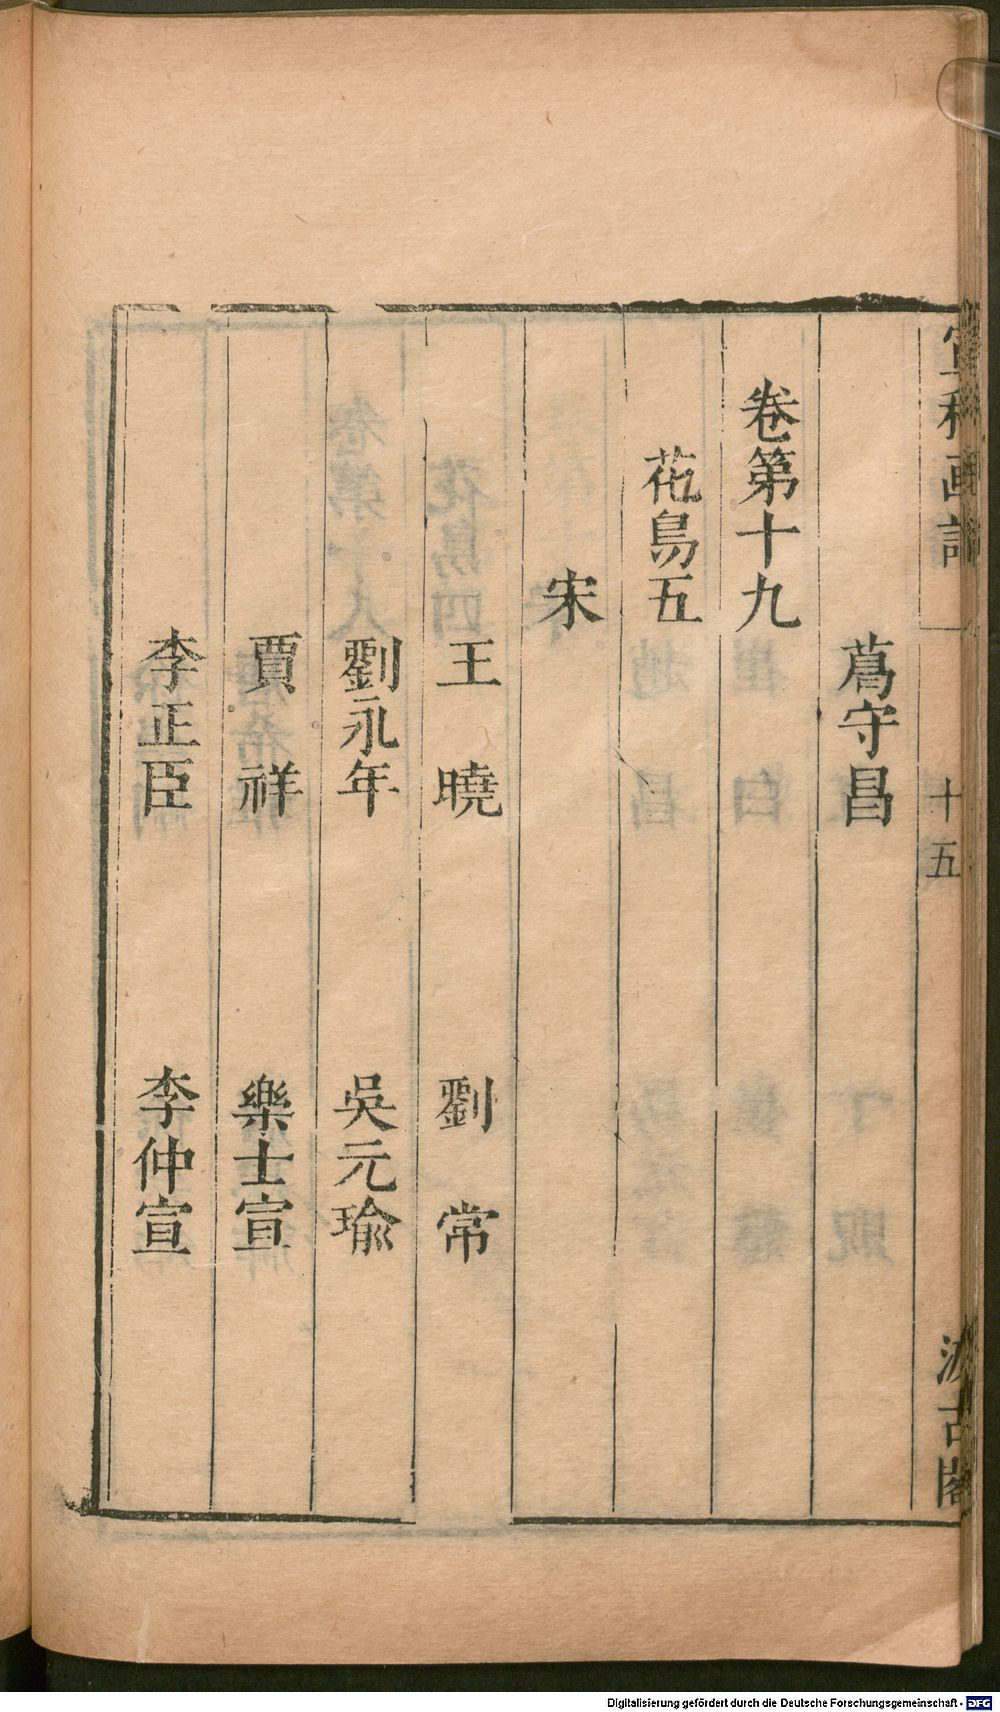 宣和画譜
十五
汲古閣
葛守昌
卷第十九
花鳥五
宋
王曉 劉常
劉永年 吳元瑜
賈祥 樂士宣
李正臣 李仲宣
Digitalisierung gefördert durch die Deutsche Forschungsgemeinschaft - DFG